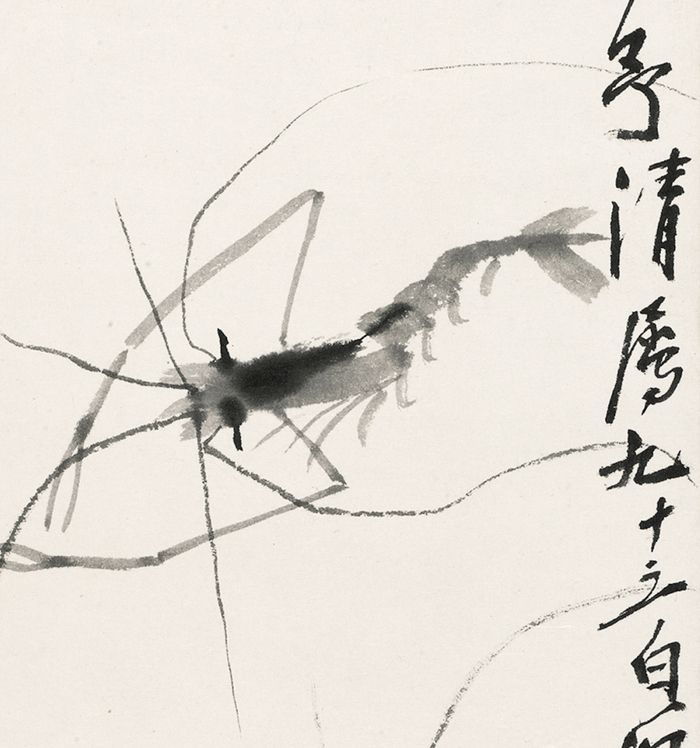 清屬九十三白